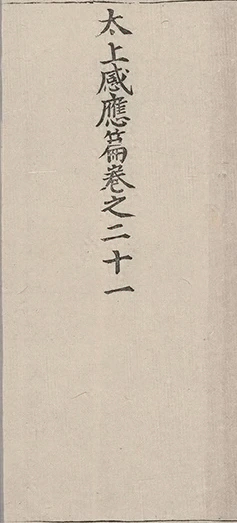 太上感應篇卷之二十一